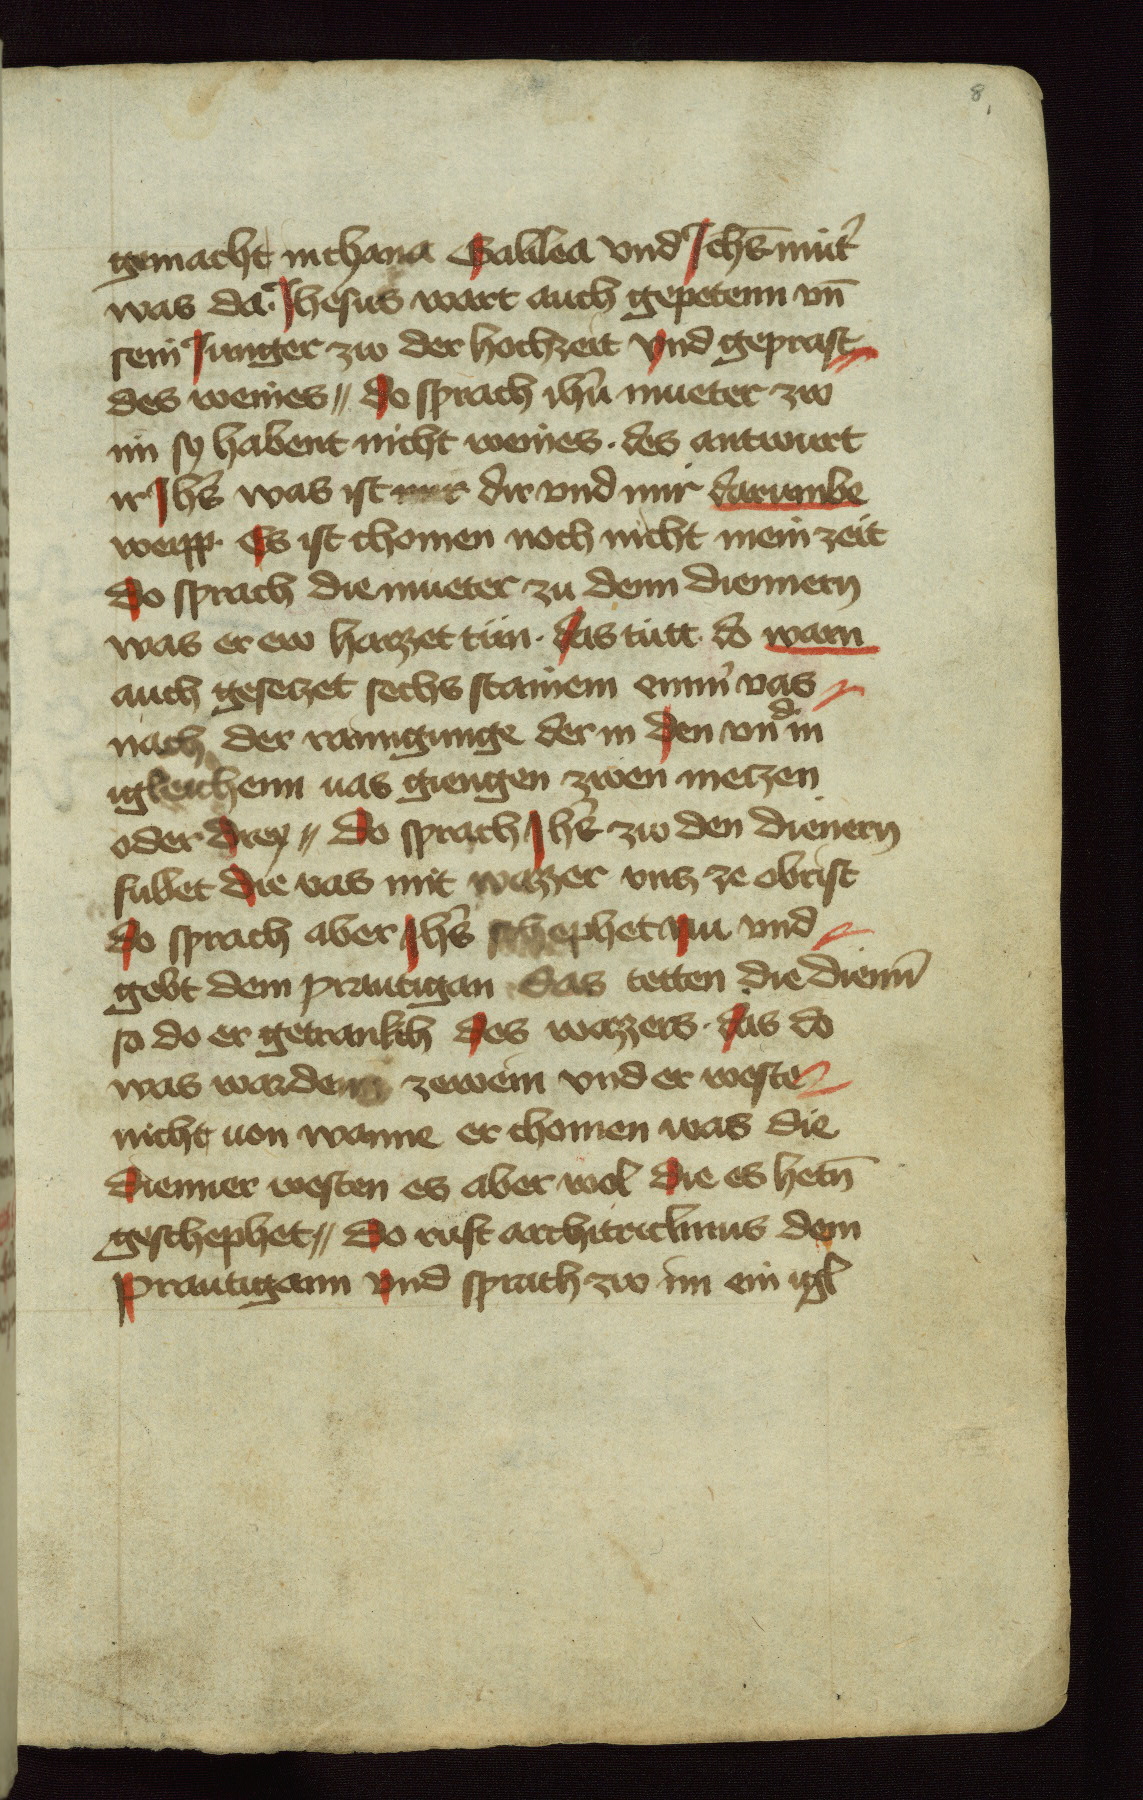 8
gemacht in chana Galilea vnd Jchs̄ müt͛
was da. Jhesus wart auch gepetenn vn̄
sein Junger zw der hochzeit vnd geprast
des weines // do sprach ihū mueter zw
im sy habent nicht weines. des antwurt
ir Jhs̄ was ist mer dir vnd mir darumbe
weipp. Es ist chomen noch nicht mein zeit
do sprach die mueter zu denn diennern
was er ew hayzet tün. das tutt. do warn
auch gesetzet sechs stainem eimm͛ vas
nach der rainigunge der in den vnd͛ in
igleichenn uas giengen zwen metzen
oder drey // do sprach Jhs̄ zw den dienern
fullet die vas mit wazzer vntz ze obrist
do sprach aber Jhs̄ schephet nu vnd
gebt dem prautigan das tetten die dienn͛
so do er getrankch des wazzers. das do
was warden zewein vnd er weste
nicht uon wanne er chomen was die
dienner westen es aber wol die es hetn̄
geschephet // do ruft architriclinus dem
prautigann vnd sprach zw im ein igl͛